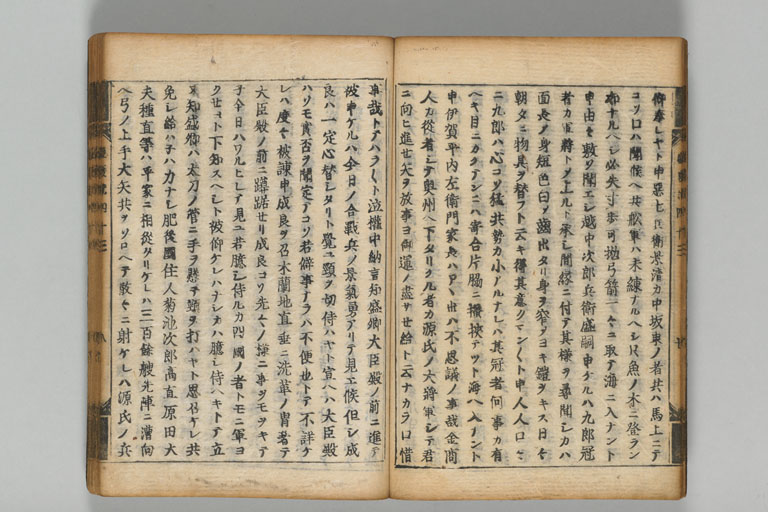 御奉レヤト申悪七兵衛景清カ申坂東ノ者共ハ馬上ニテ
コソ口ハ聞候ヘ共船軍ハ未練ナルヘシ只魚ノ木ニ登ラン
ナルヘシ必失寸歩可抛弓箭一々ニ取テ海ニ入ナント
申由ヲ散ヲ聞エシ越中次郎兵衛盛嗣申ケルハ九郎冠
者カ軍将トメ上ルト承レ間縁ニ付テ其様ヲ尋聞シカハ
面長ノ身短色白ク歯出タリ身ヲ窄ヲヨキ鎧ヲキス日々
朝タニ物具ヲ替フト云キ得其意クマン〳〵ト申人人口々
ニ九郎ハ心コソ猛共勢カ小アルナレハ其冠者何事カ有
ヘキ目ニカクアンニハ寄合片脇ニ挾テツト海ヘ入ナント
申伊賀平内左衛門家長ハアハ出ハ不思議ノ事哉金商
人カ從者シテ奥州ヘ下タリケル者カ源氏ノ大將軍シテ君
ニ向ヒ進セ矢ヲ放事ヨ御運ノ盡サせ給ト云ナカラロ惜
事哉トテハラ〳〵ト泣權中納言知盛卿大臣殿ノ前ニ進テ
被申ケルハ今日ノ合戰兵ノ景氣勇アリテ見エ候但シ成
良ハ一定心替シタリト覺ユ頸ヲ切侍ハヤト宣ヘハ大臣殿
ハソモ實否ヲ聞定テコソ若僻事ナラハ不便也トテ不詳ケ
レハ度々被諌申成良ヲ召木蘭地直垂ニ洗革ノ冑着テ
大臣殿ノ前ニ蹲踞せリ成良コソ先々ノ樣ニ事ヲモヲキテ
子今日ハワルヒレテ見ユ若臆シ侍ルカ四國ノ者トモニ軍ヨ
クせヨト下知スヘシト被仰ケレハナシカハ臆シ侍ヘキトテ立
ヌ知盛卿ハ太刀ノ管ニ手ヲ懸テ頸ヲ打ハヤト思召ケレ共
免レ給ハ子ハ力ナシ肥後國住人菊池次郎高直原田大
夫種直等ハ平家ニ相從タリケレハ三百餘艘先陣ニ漕向
ヘ弓ノ上手大矢共ヲソロヘテ散々ニ射ケレハ源氏ノ兵